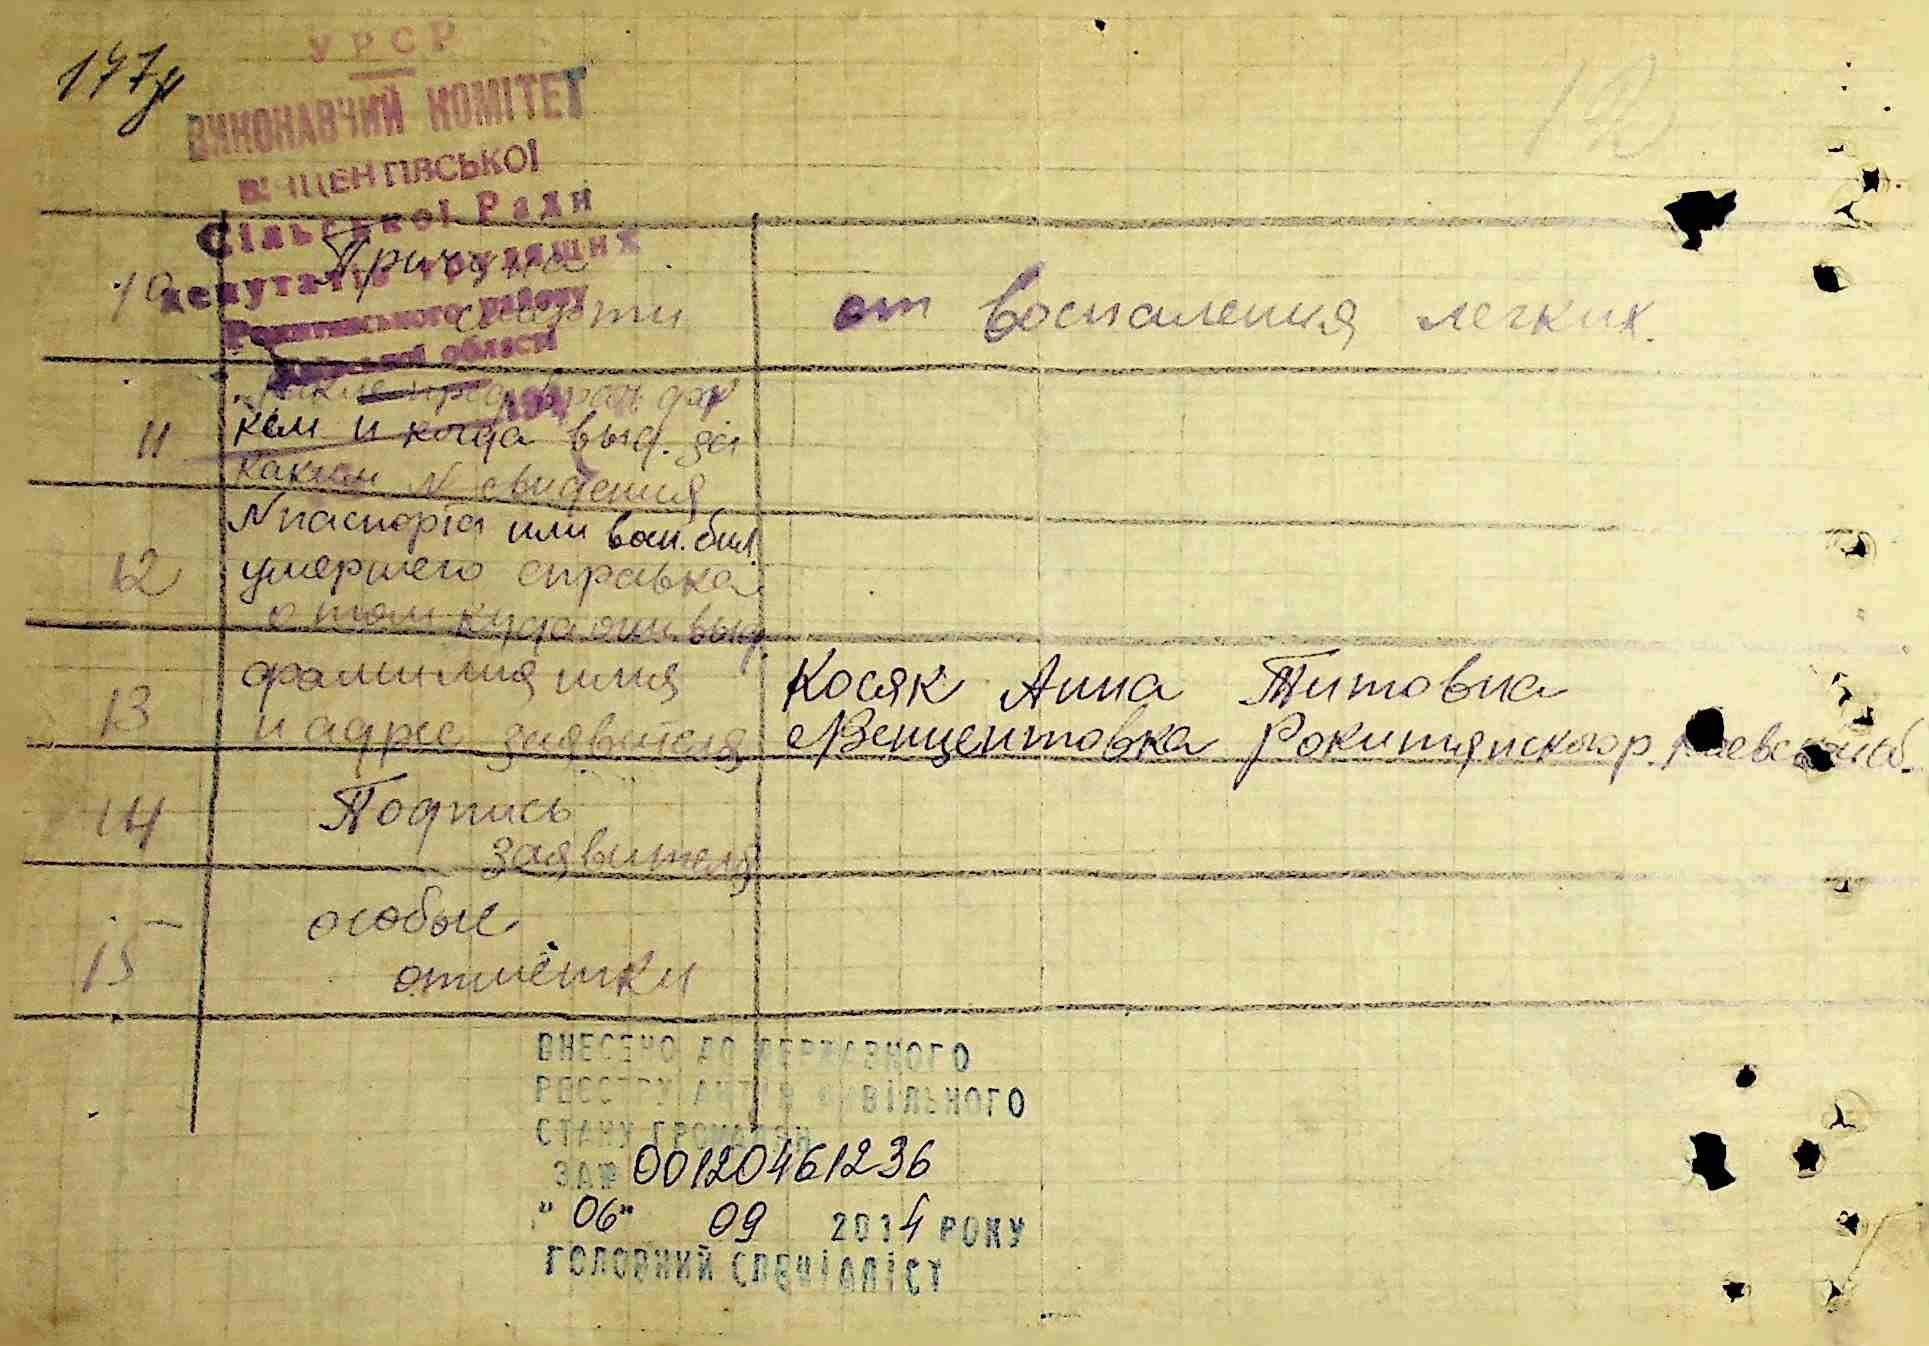 УРСР
ВИКОНАВЧИЙ КОМІТЕТ
Сільської Ради
депутатів трудящих
Рокитянського району
області
10 Причина
смерти
от воспаления легких.
11
кем и когда выд. за
каким N свидения
12 N паспорта или воен. бил
умершего справка
о том куда они выд.
13 фамилия имя
и адрес заявителя
Косяк Анна Титовна
Венцентовка Рокитянского р.
14 Подпись
заявителя
15 особые
отметки
ВНЕСЕНО ДО ДЕРЖАВНОГО
РЕЄСТРУ АКТІВ ЦИВІЛЬНОГО
СТАНУ ГРОМАДЯН
ЗА № 00120461236
"06" 09 2014 РОКУ
ГОЛОВНИЙ СПЕЦІАЛІСТ